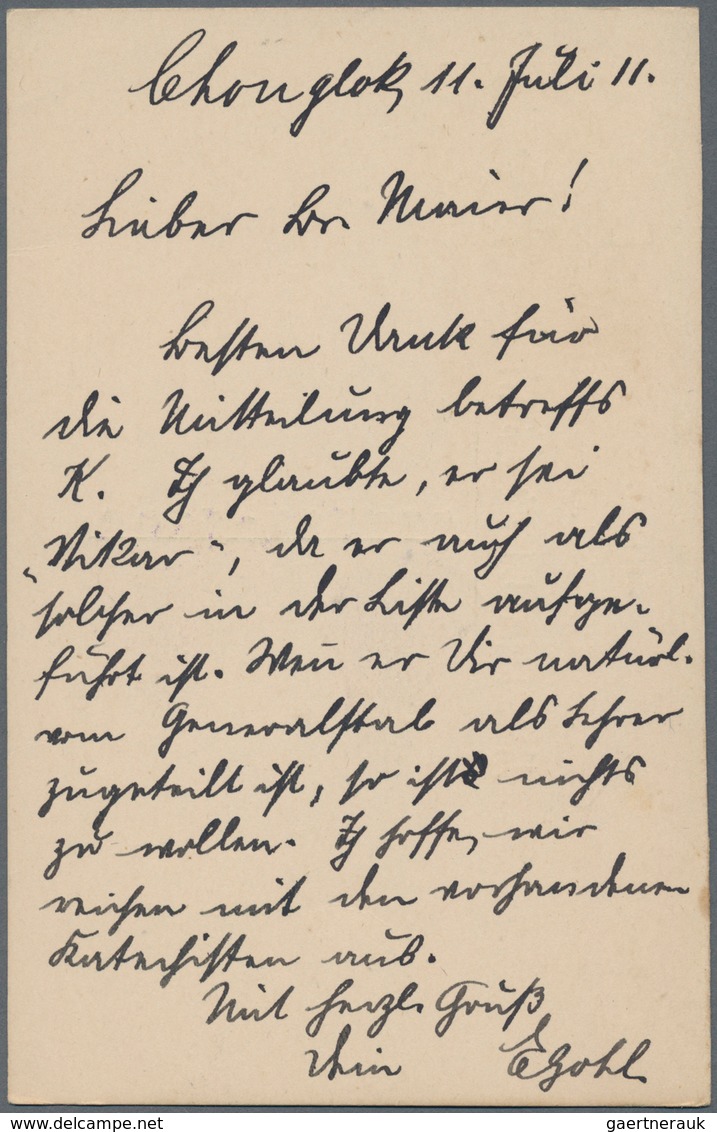 Chonglok, 11. Juli 11.
Lieber Br. Maier!
Besten Dank für
die Mitteilung betreffs
K. Ich glaubte, er sei
„Vikar“, da er auch als
solcher in der Liste aufge-
führt ist. Wen̅ er Dir natürl.
vom Generalstab als Lehrer
zugeteilt ist, so ists nichts
zu wollen. Ich hoffe, wir
reichen mit den vorhandenen
Katechisten aus.
Mit herzl. Gruß
Dein EGohl.
gaertnerauk